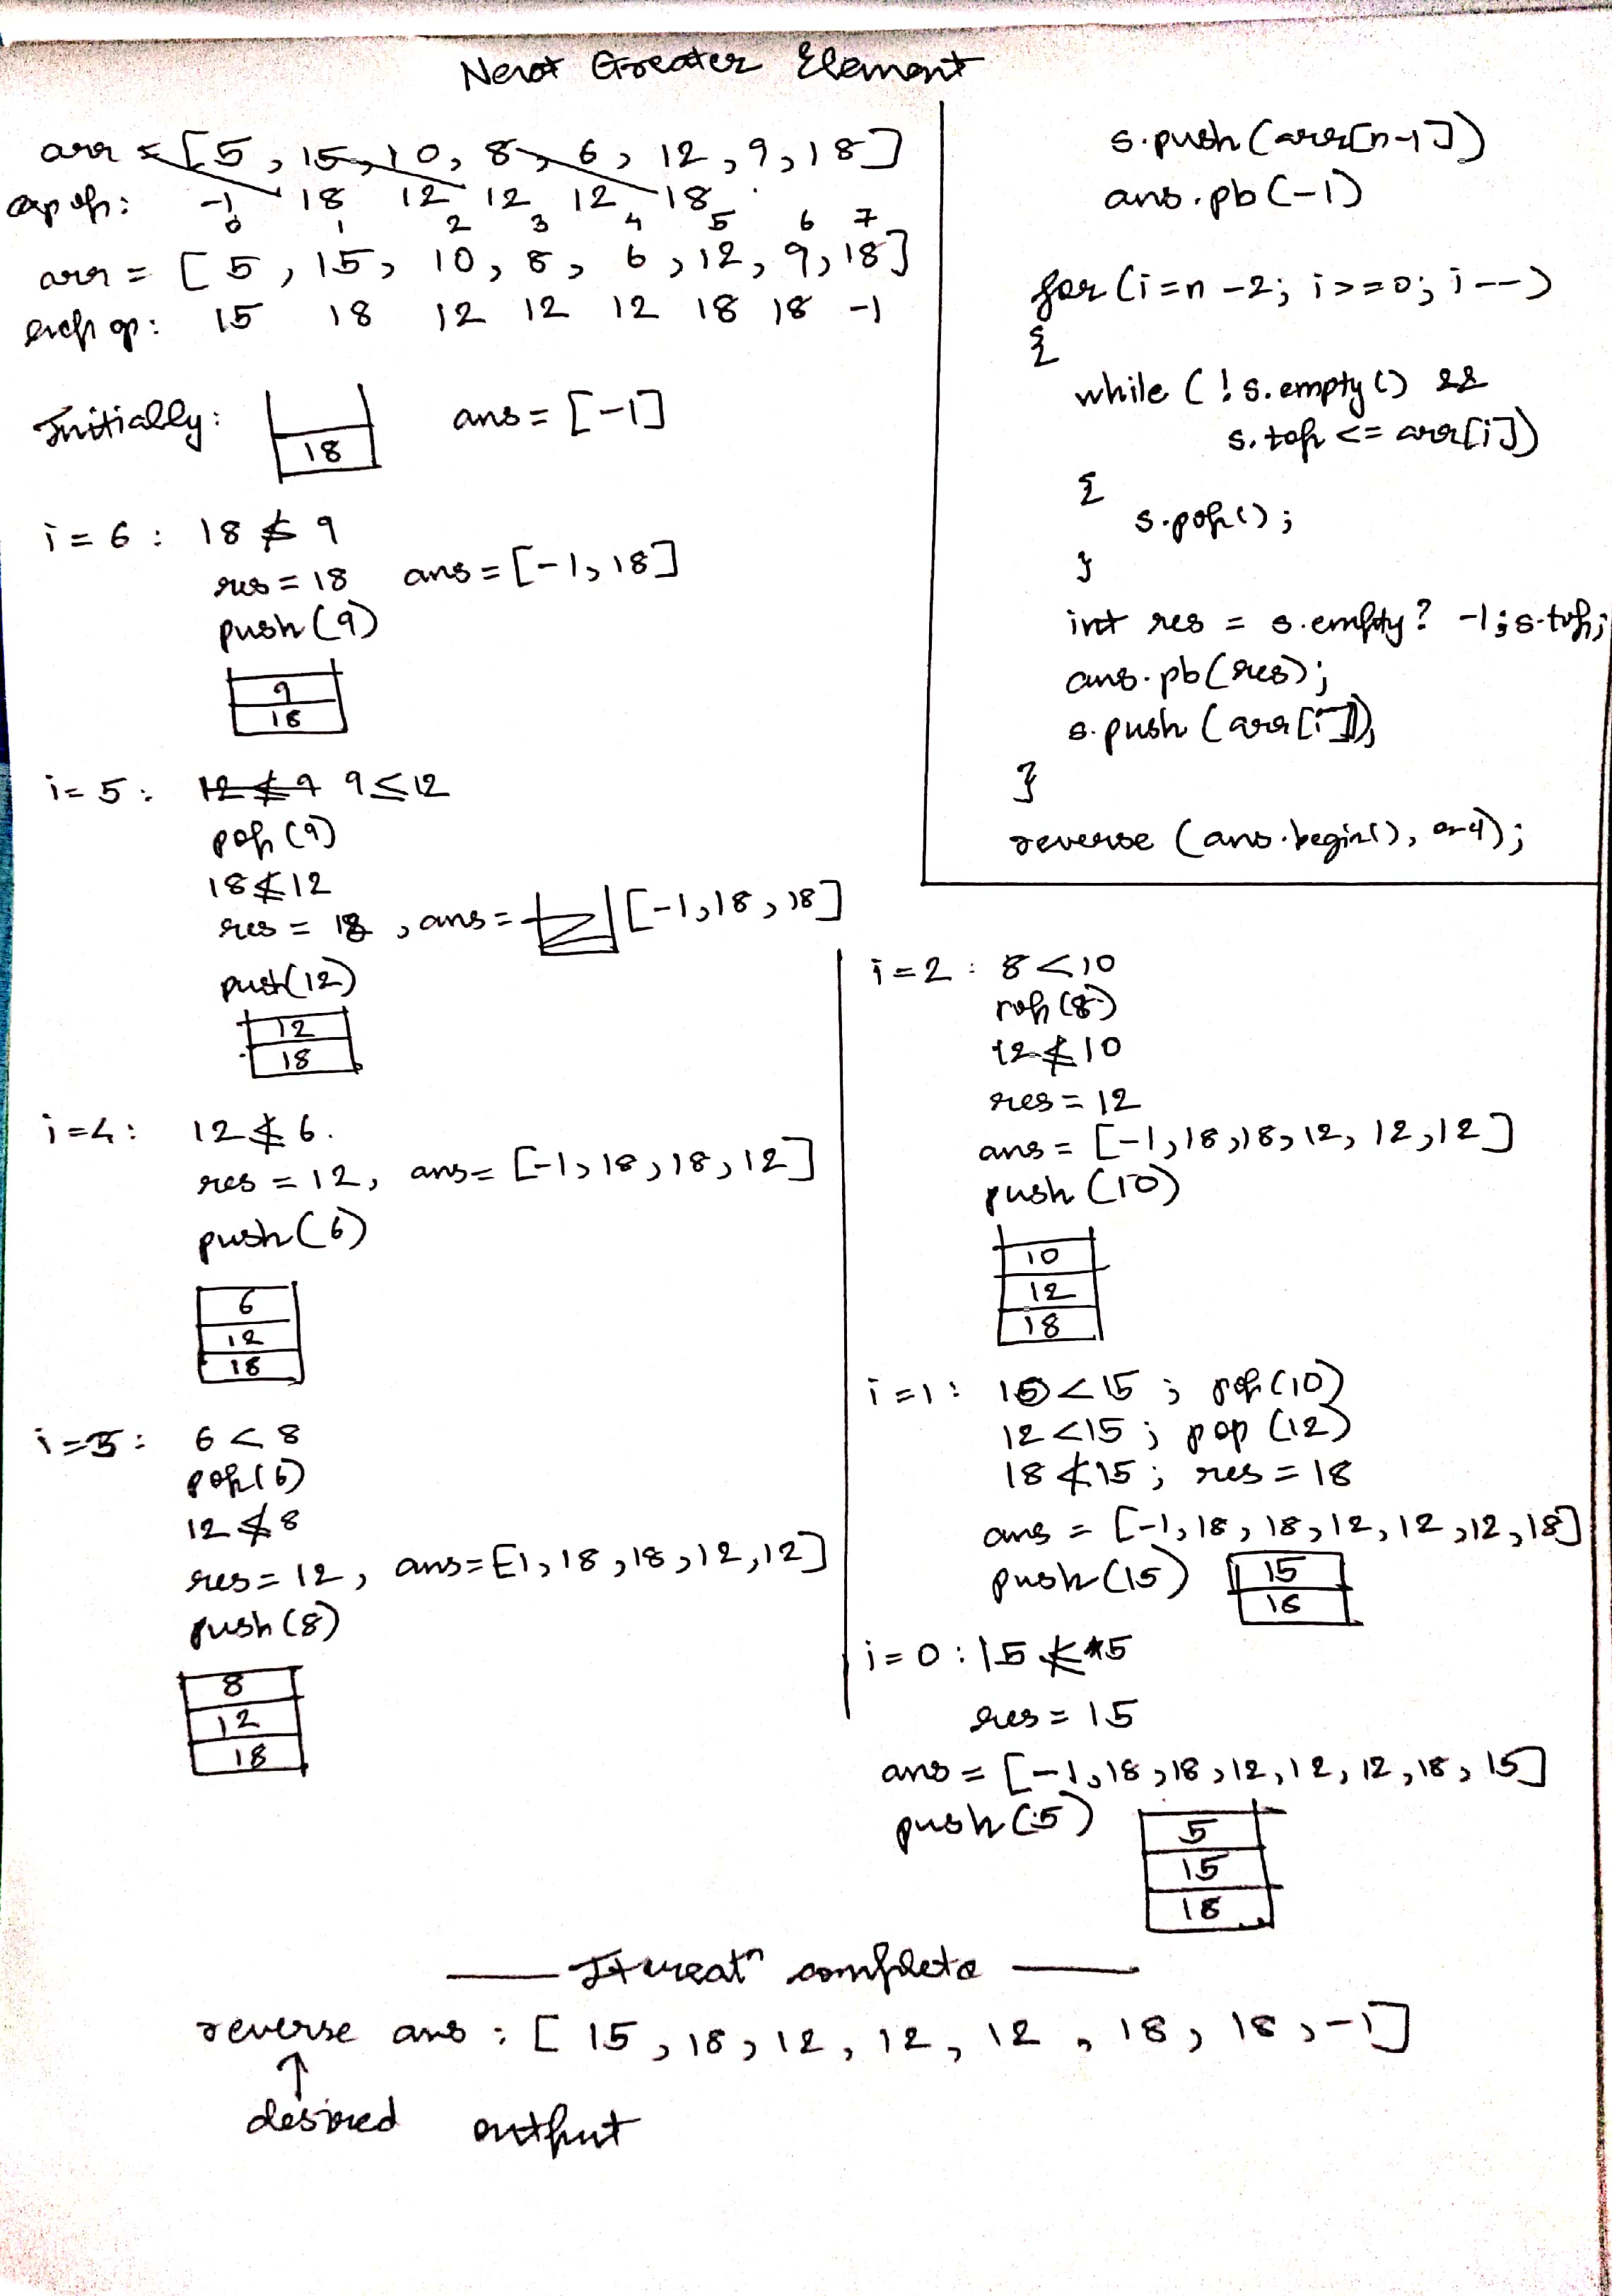 Next Greater Element
arr = [5, 15, 10, 8, 6, 12, 9, 18]
exp op: -1 18 12 12 12 18
0 1 2 3 4 5 6 7
arr = [5, 15, 10, 8, 6, 12, 9, 18]
op: 15 18 12 12 12 18 18 -1
Initially: 18 ans = [-1]
i = 6 : 18 ≰ 9
res = 18 ans = [-1, 18]
push(9)
9
18
i = 5 : 12 ≰ 9 9 ≤ 12
pop(9)
18 ≰ 12
res = 18, ans = [-1, 18, 18]
push(12)
12
18
i = 4 : 12 ≰ 6.
res = 12, ans = [-1, 18, 18, 12]
push(6)
6
12
18
i = 3 : 6 < 8
pop(6)
12 ≮ 8
res = 12, ans = [-1, 18, 18, 12, 12]
push(8)
8
12
18
s.push(arr[n-1])
ans.pb(-1)
for(i=n-2; i>=0; i--)
{
while (!s.empty() &&
s.top <= arr[i])
{
s.pop();
}
int res = s.empty? -1:s.top;
ans.pb(res);
s.push(arr[i]);
}
reverse (ans.begin(), end);
i = 2 : 8 < 10
pop(8)
12 ≰ 10
res = 12
ans = [-1, 18, 18, 12, 12, 12]
push(10)
10
12
18
i = 1 : 10 < 15 ; pop(10)
12 < 15 ; pop(12)
18 ≮ 15 ; res = 18
ans = [-1, 18, 18, 12, 12, 12, 18]
push(15) 15
18
i = 0 : 15 ≮ 5
res = 15
ans = [-1, 18, 18, 12, 12, 12, 18, 15]
push(5)
5
15
18
Iteratⁿ complete
reverse ans : [15, 18, 12, 12, 12, 18, 18, -1]
↑
desired output